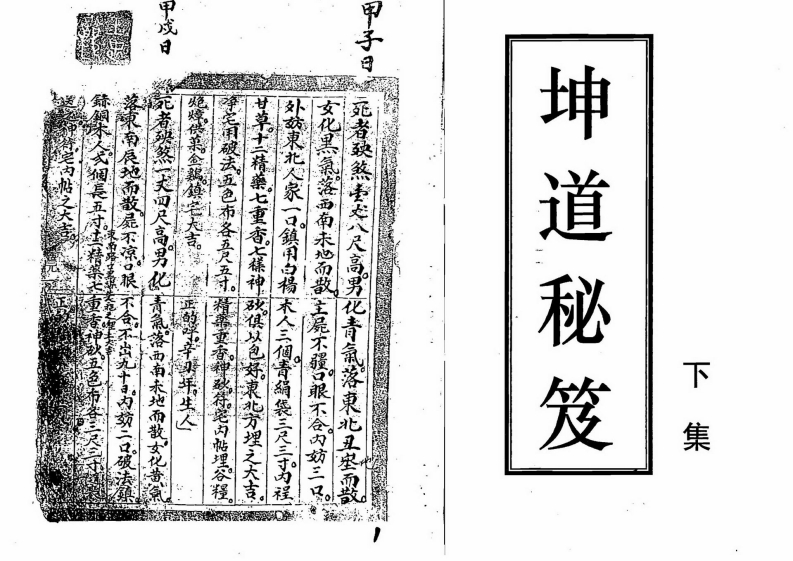 坤道秘笈
下集
甲子日
死者殃煞壹丈八尺高。男化青氣。落東北丑地而散。
女化黑氣。落西南未地而散。主屍不殭。口眼不合。內妨三口。
外妨東北人家一口。鎮用白楊木人三個。青絹袋三尺三寸。內裎
甘草。十二精藥。七重香。七樣神砂。俱以包好。東北方埋之大吉。
淨宅用破法。五色布各五尺五寸。精藥重香神砂符。宅內帖埋。谷糧
供菓。金鷄鎮宅大吉。正的呼辛丑年生人
甲戌日
死者殃煞一丈四尺高。男化青氣。落西南未地而散。女化黃氣
落東南辰地而散。屍不凉。口眼不合。不出九十日。內妨二口。破法鎮
銅木人弍個。長五寸。十二精藥七重香神砂。五色布各二尺三寸
符宅內帖之大吉。
1